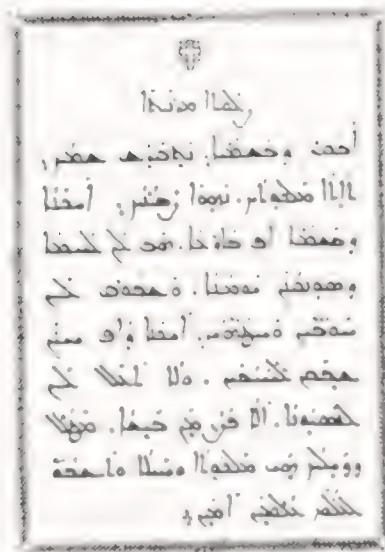 ܨܠܘܬܐ ܡܪܢܝܬܐ
ܐܒܘܢ ܕܒܫܡܝܐ. ܢܬܩܕܫ ܫܡܟ܆
ܬܐܬܐ ܡܠܟܘܬܟ. ܢܗܘܐ ܨܒܝܢܟ܆ ܐܝܟܢܐ
ܕܒܫܡܝܐ ܐܦ ܒܐܪܥܐ. ܗܒ ܠܢ ܠܚܡܐ
ܕܣܘܢܩܢܢ ܝܘܡܢܐ. ܘܫܒܘܩ ܠܢ
ܚܘܒܝܢ ܘܚܛܗܝܢ. ܐܝܟܢܐ ܕܐܦ ܚܢܢ
ܫܒܩܢ ܠܚܝܒܝܢ. ܘܠܐ ܬܥܠ ܠܢ
ܠܢܣܝܘܢܐ. ܐܠܐ ܦܨܢ ܡܢ ܒܝܫܐ. ܡܛܠ
ܕܕܝܠܟ ܗܝ ܡܠܟܘܬܐ ܘܚܝܠܐ
ܠܥܠܡ ܥܠܡܝܢ ܐܡܝܢ܀